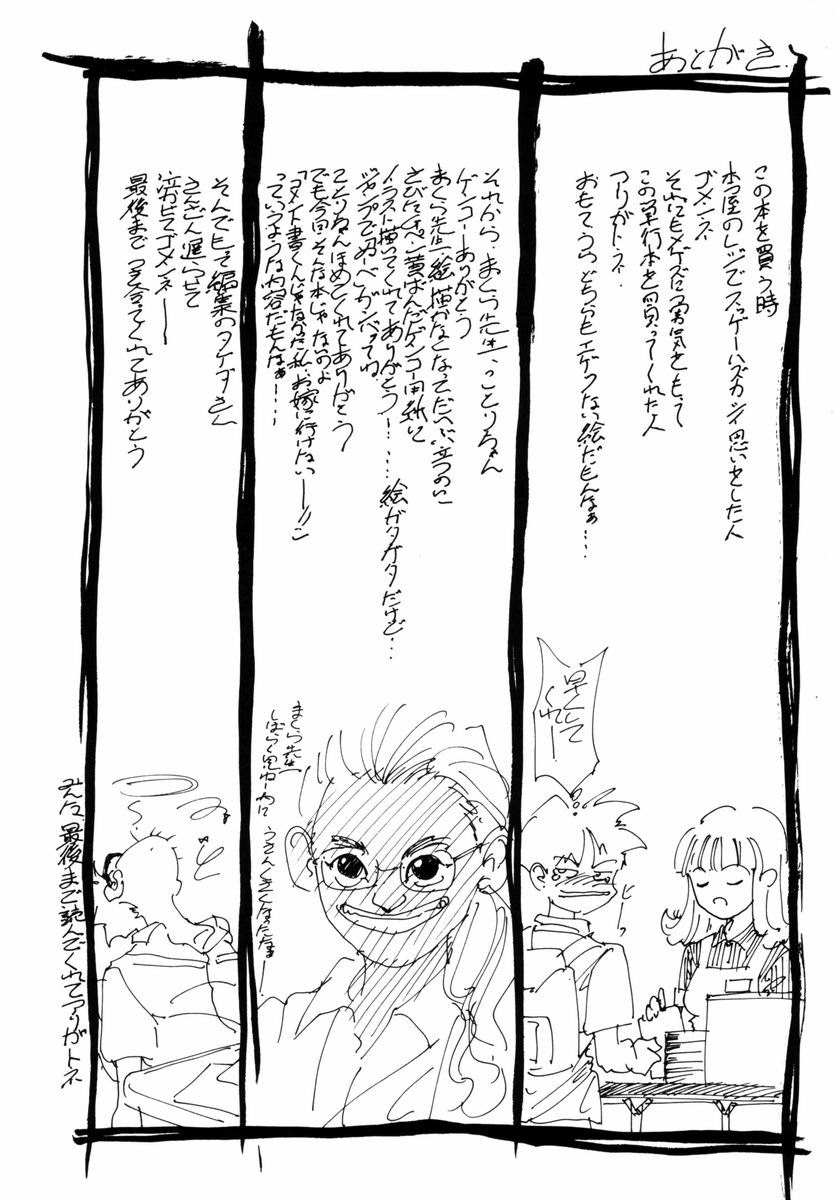 あとがき
この本を買う時
本屋のレジでスッゲーハズカシイ思いをした人
ゴメンネ
それにもメゲズに勇気をもって
この単行本を買ってくれた人
アリガトネ
おもてうらどちらもエゲツない絵だもんなぁ…
早くして
くれー
ピーッ
それから、まくら先生、ことりちゃん
ゲンコーありがとう
まくら先生 絵描かなくなってだいぶ立つのに
さびたペン 黄ばんだゲンコー用紙に
イラスト描いてくれてありがとう……絵がガタガタだけど…
ジャンプで
ことりちゃんほめてくれてありがとう
でも今回そんな本じゃないのよ
「コメント書くんじゃなかった私、お嫁に行けないーーっ」
っていうような内容だもんなぁ……
まくら先生
しばらく見ねーうちに
うさんくさくなったなぁー
そんでもって編集のタケダさん
さんざん遅らせて
泣かせてゴメンネーー
最後までつき合ってくれてありがとう
みんな、最後まで読んでくれてアリガトネ